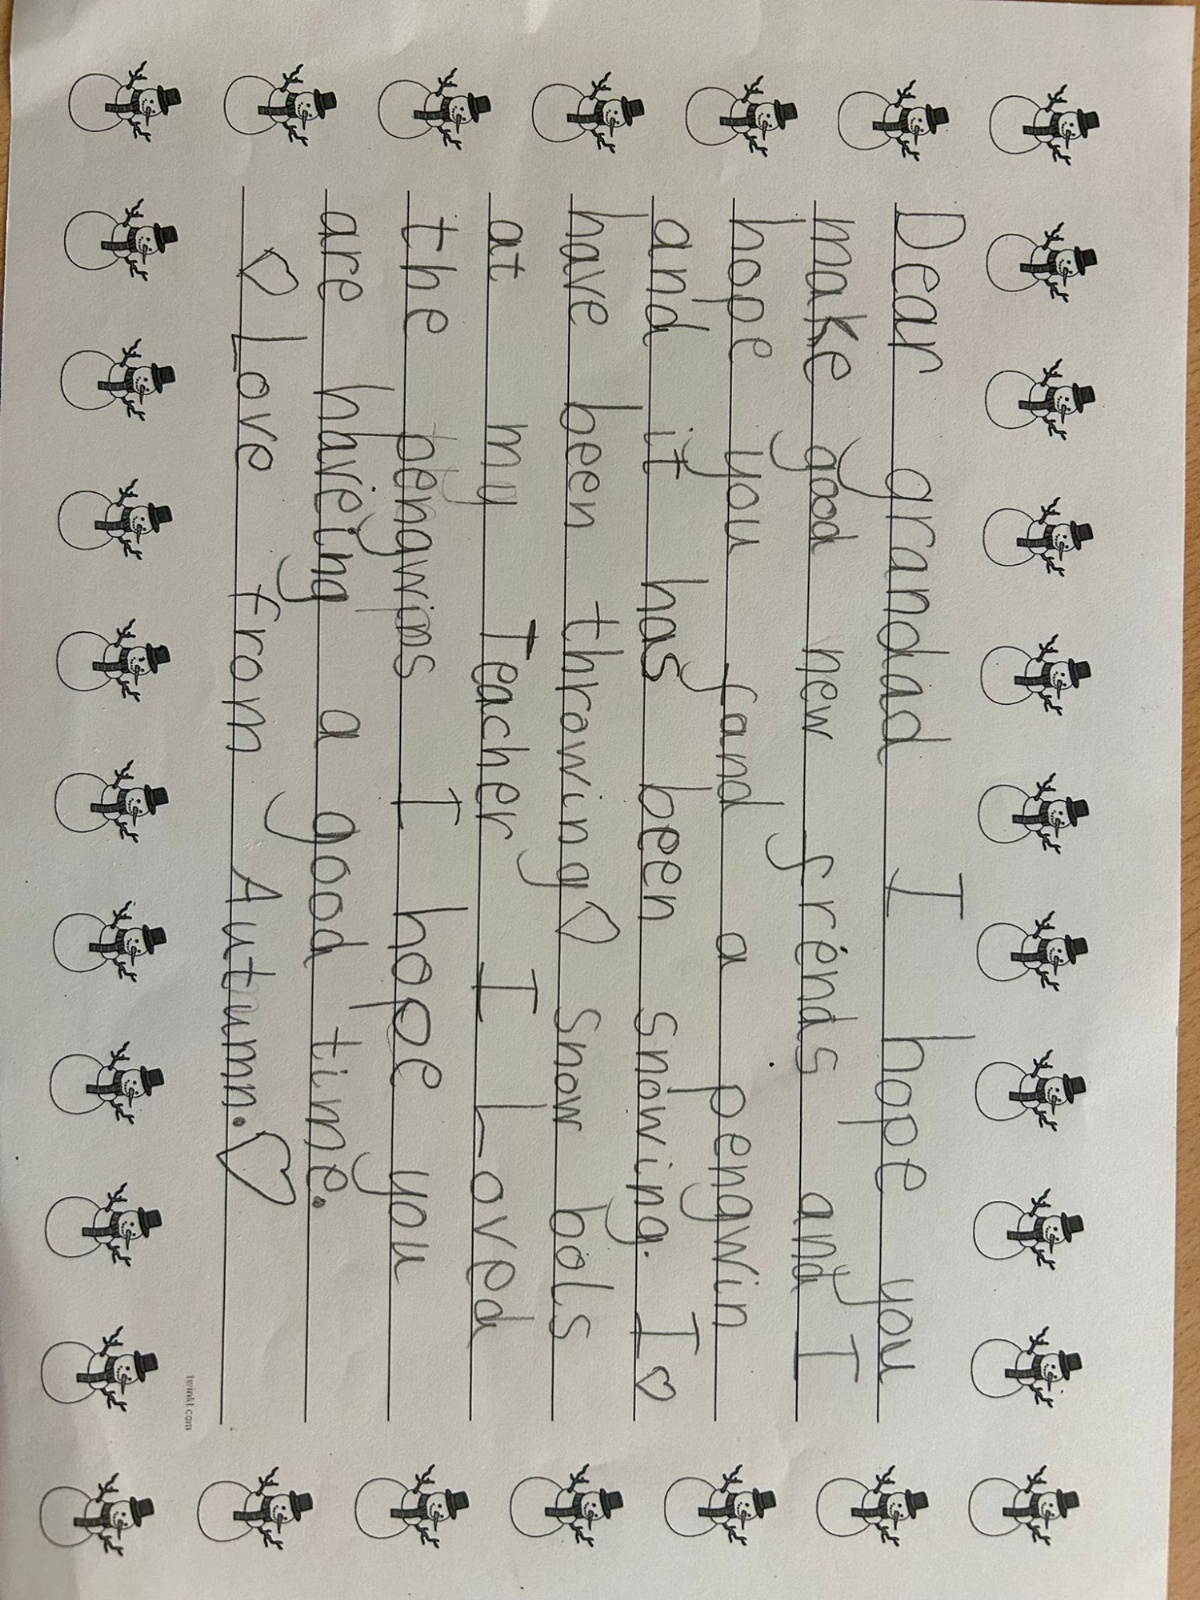 Dear grandad I hope you
make good new friends and I
hope you fand a pengwin
and it has been snowing. I ♡
have been throwing ♡ snow bols
at my Teacher I Loved
the pengwins I hope you
are haveing a good time.
♡ Love from Autumn. ♡
twinkl.com